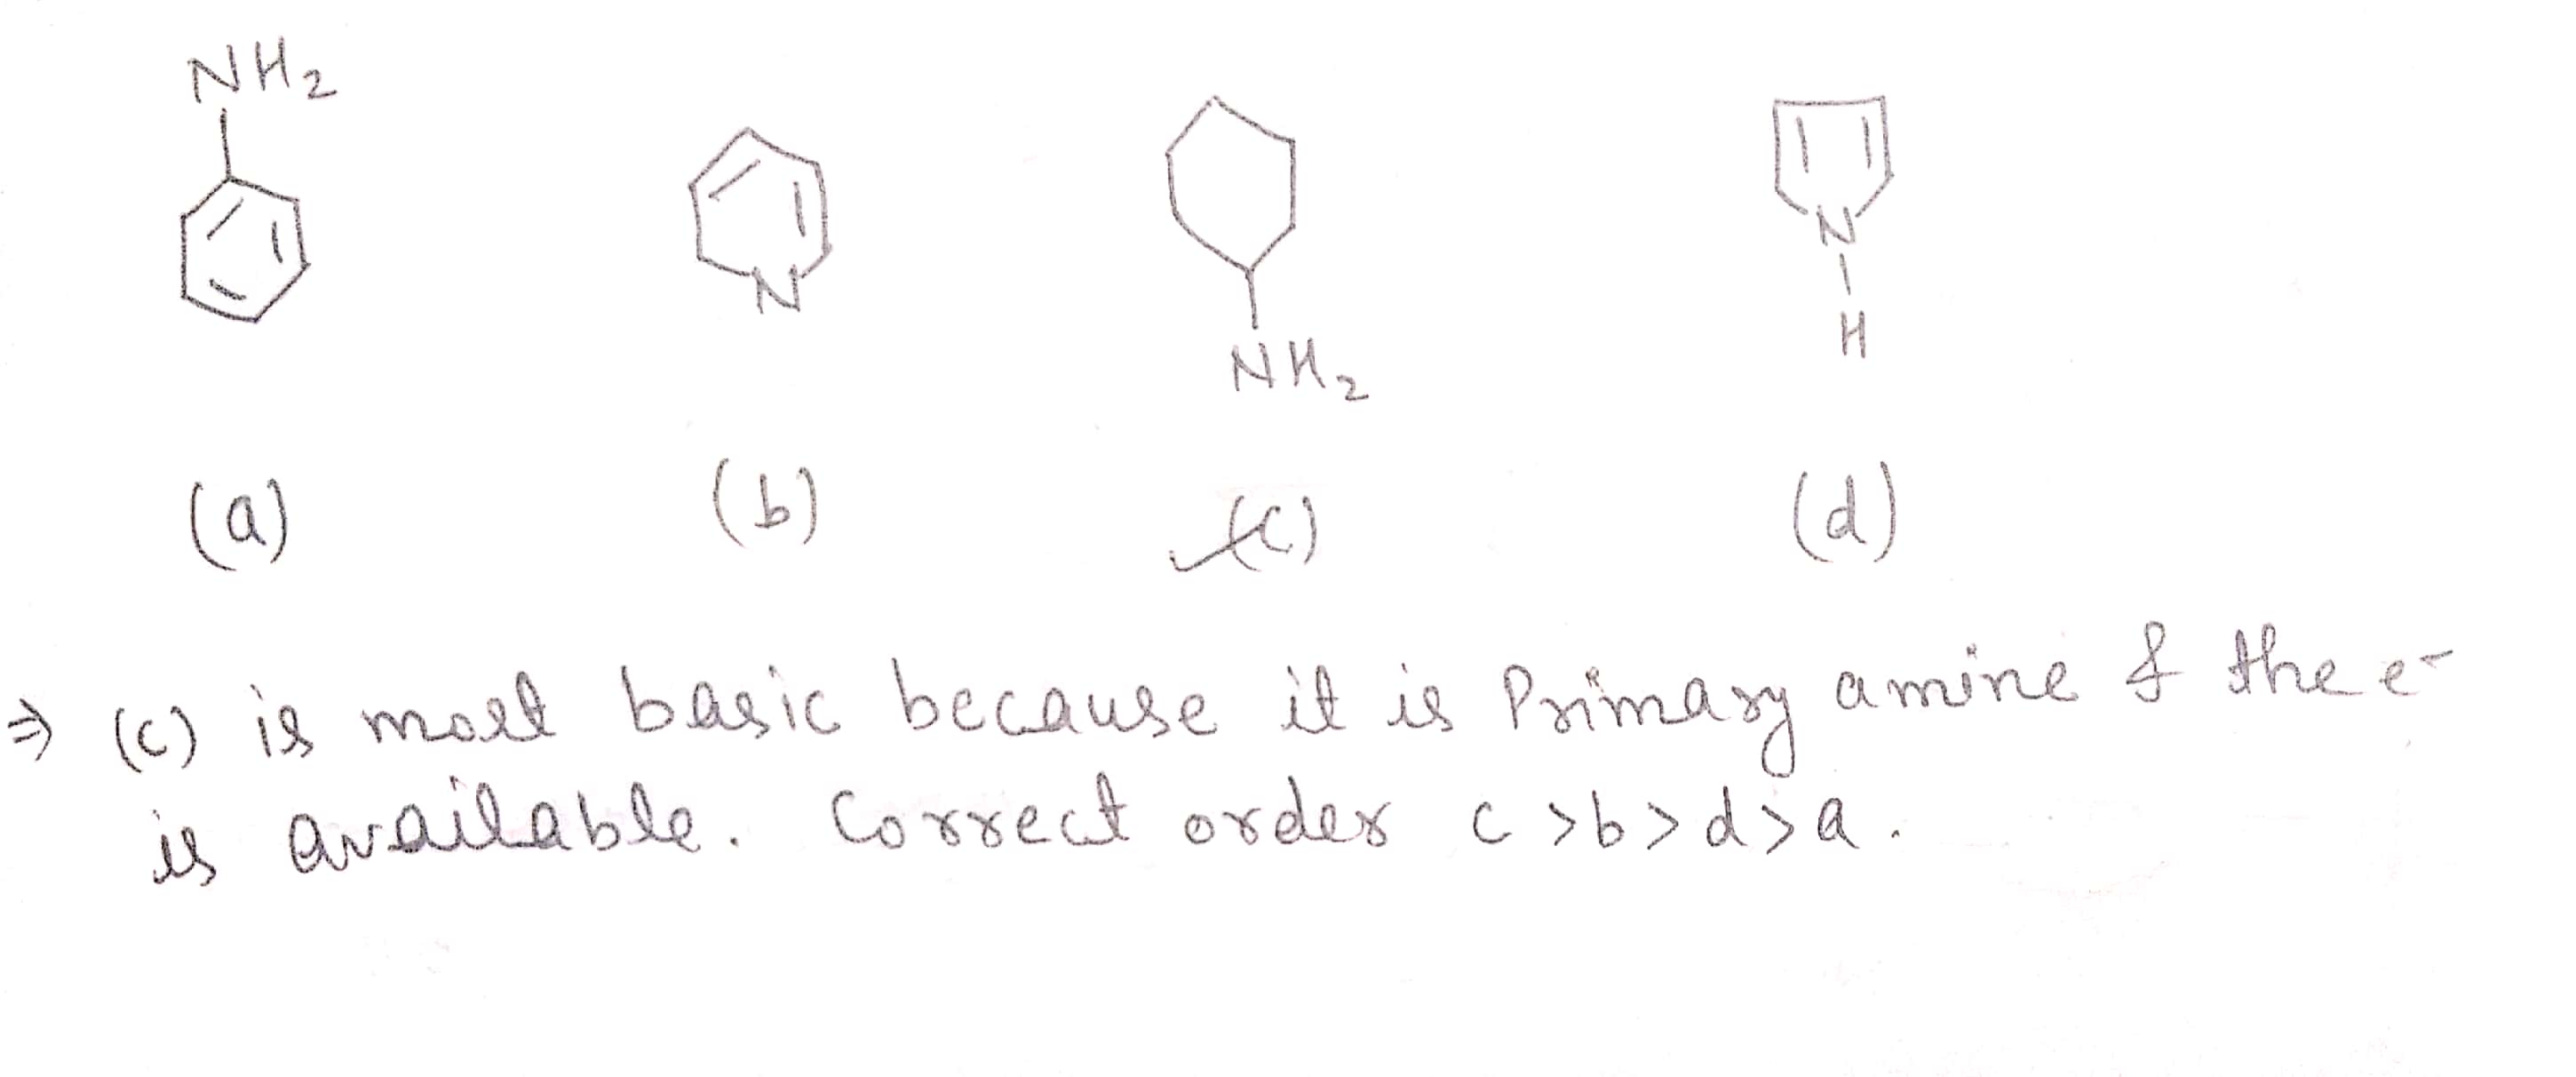 NH2
N
NH2
N
H
(a) (b) (c) (d)
⇒ (c) is most basic because it is Primary amine & the e-
is available. Correct order c >b> d>a.